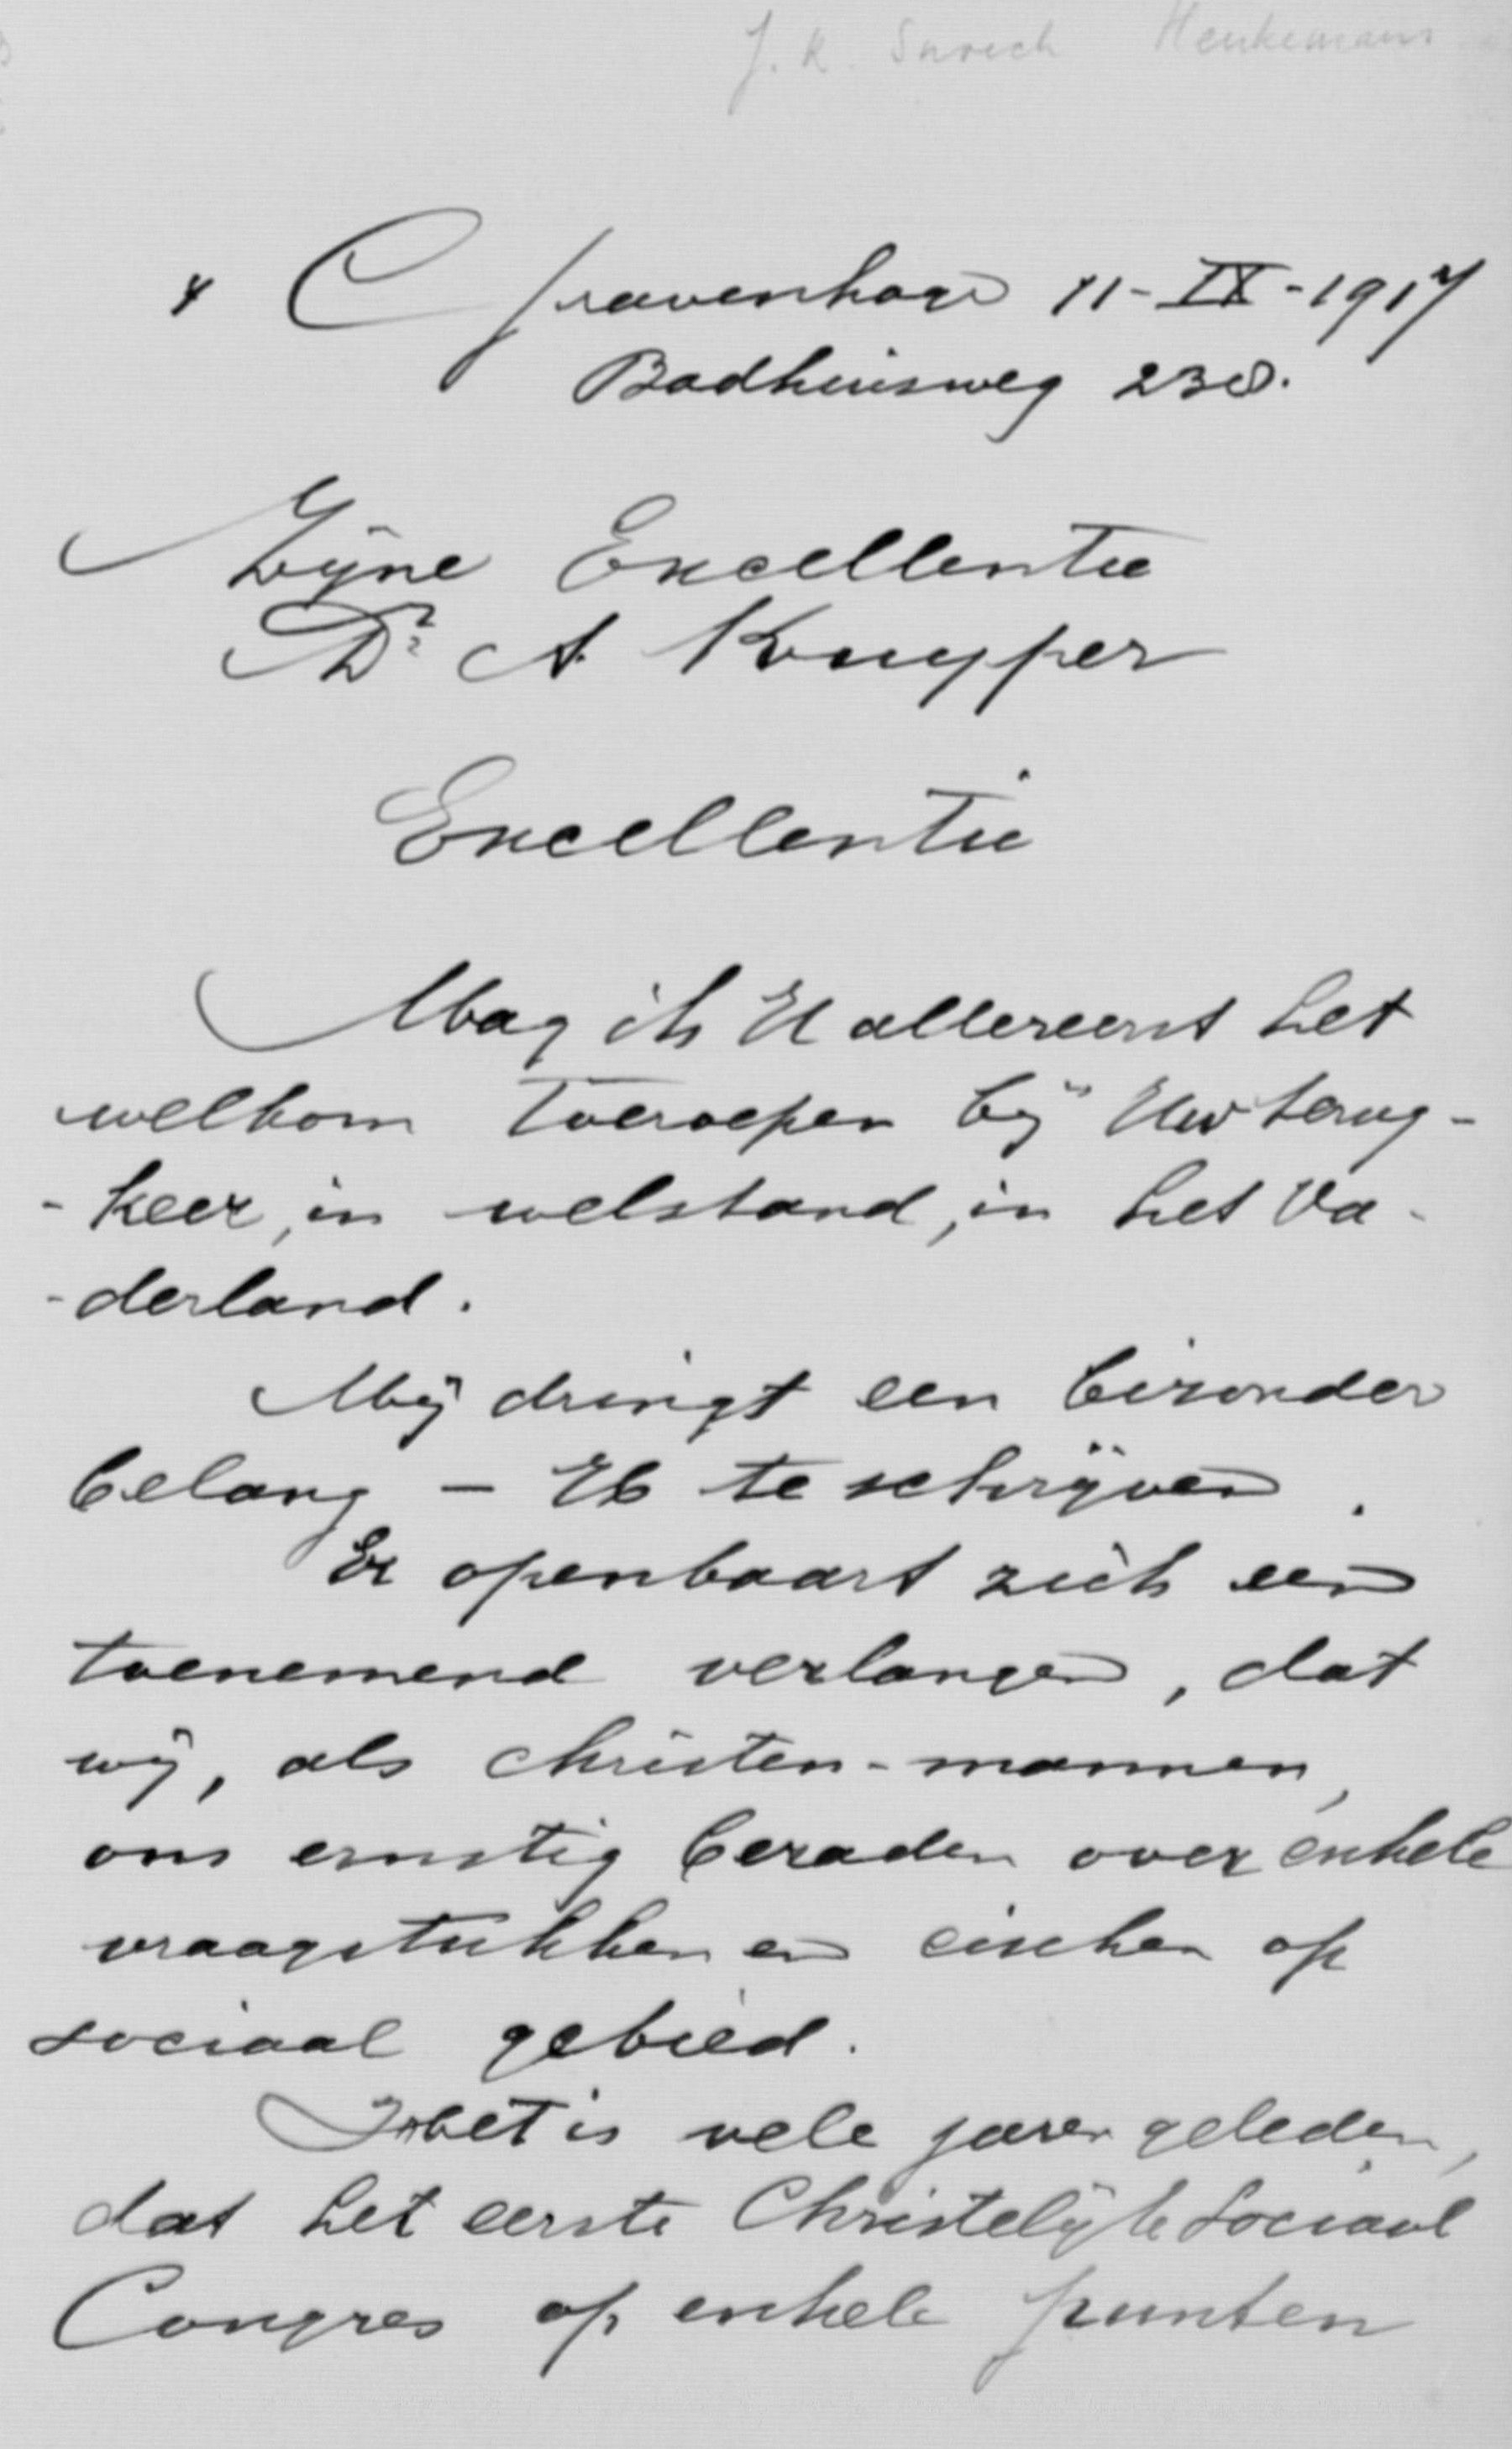 J. R. Snoeck Henkemans
's Gravenhage 11-IX-1917
Badhuisweg 238.
Zijne Excellentie
Dr A Kuyper
Excellentie
Mag ik U allereerst het
welkom toeroepen bij Uw terug-
-keer, in welstand, in het Va-
-derland.
Mij dringt een bizonder
belang - U te schrijven.
Er openbaart zich een
toenemend verlangen, dat
wij, als christen-mannen,
ons ernstig beraden over enkele
vraagstukken en eischen op
sociaal gebied.
het is vele jaren geleden,
dat het eerste Christelijk Sociaal
Congres op enkele punten